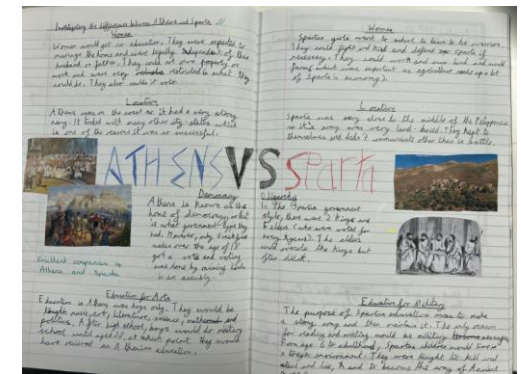 Investigating the differences between Athens and Sparta
Women
Women would get no education. They were expected to
manage the home and were legally dependent of their
husband or father. They could not own property or
work and were very restricted in what they
could be. They also couldn't vote.
Location
Athens was on the coast so it had a very strong
navy. It traded with many other city-states which
is one of the reasons it was so successful.
ATHENS VS Sparta
Democracy
Athens is known as the
home of democracy, as that
is what government type they
had. However, only free
males over the age of
got a vote and voting
was done by raising hands
in an assembly.
Excellent comparison of
Athens and Sparta
Education for Arts
Education in Athens was boys only. They would be
taught music, art, literature, science, mathematics and
politics. After high school, boys would do military
school until aged 20, at which point they would
have received an Athenian education.
Women
Spartan girls went to school to learn to be warriors.
They could fight and kill and defend Sparta if
necessary. They could work and own land and would
farm which was important as agriculture made up a lot
of Sparta's economy.
Location
Sparta was very close to the middle of the Peloponnese
so its army was very land-based. They kept to
themselves and didn't communicate other than in battle.
Oligarchy
In the Spartan government
style, there were 2 Kings and
elders (who were voted for
every years). The elders
could overrule the kings but
often didn't.
Education for Military
The purpose of Spartan education was to make
a strong army and then maintain it. The only reason
for reading and writing would be military
From age 6 to adulthood, Spartan children would live
tough environment. They were taught to kill and
and lie, and to become the Ancient